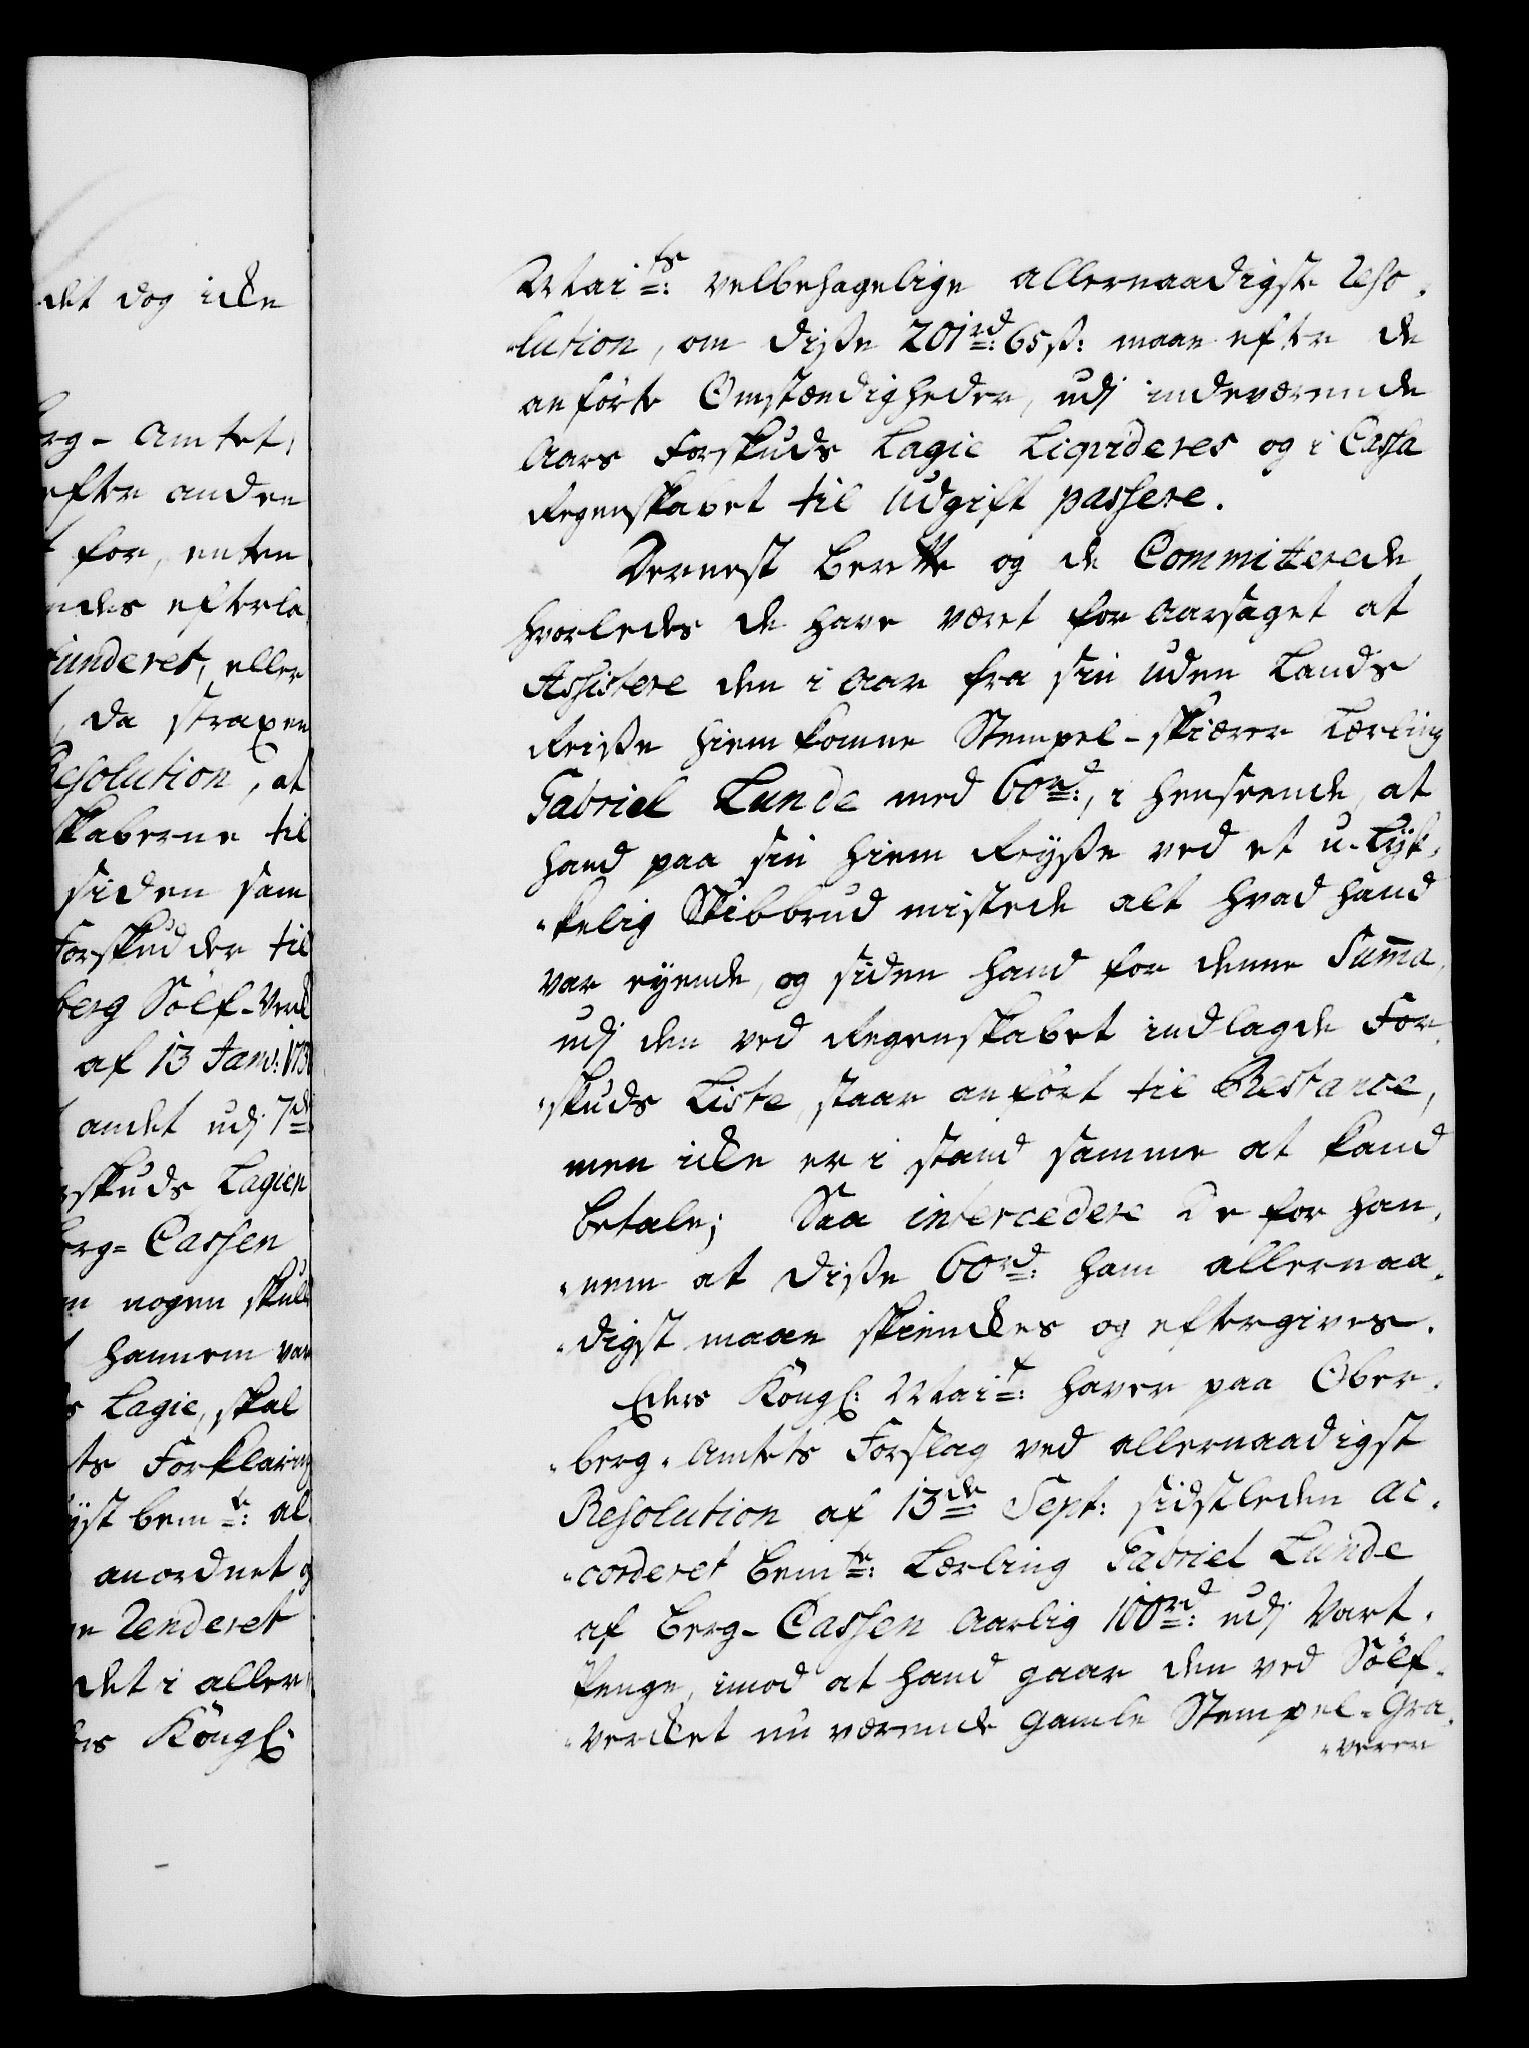 det dog icke
erg-Amtet,
efter anden
for, enten
ndes efterla
funderet, eller
da straxen
Resolution, at
skaberne til
siden som
Forskudder til
berg Sølf-Verk
af 13 Janv: 173
andet udj 7de
rskuds Lagien
erg-Cassen
en nogen skuld
hannem var
s Lagie, skal
ts Forklaring
yst bemte: al
anordnet o
n Renderet
det i aller
ers Kongl:
Maits: velbehagelige allernaadigste Reso-
-lution, om disse 201rd: 65 ss: maae efter de
anførte Omstændigheder, udj indeværende
Aars Forskuds Lagie Liqvideres og i Cassa
Regenskabet til Udgift passere.
Dernest berette og de Committerede
hvorledes de have været foraarsaget at
Assistere den i Aar fra sin uden Lands
Reisse hiemkomne Stempel-skiærer Lærling
Gabriel Lunde med 60rd:, i henseende, at
hand paa sin hiem Reysse ved et u-lyk-
-kelig Skibbrud mistede alt hvad hand
var eyende, og siden hand for denne Summa,
udj den ved Regenskabet indlagde For-
-skuds Liste, staar anført til Restance,
men icke er i stand samme at kand
betale; Saa intercedere De for han-
-nem at disse 60rd: ham allernaa-
-digst maae skienckes og eftergives.
Eders Kongl: Mait: haver paa Ober-
-berg-Amtets Forslag ved allernaadigst
Resolution af 13de Sept: sidstleden ac-
-corderet bemte: Lærling Gabriel Lunde
af Berg-Cassen Aarlig 100rd: udj Vart-
Penge, imod at hand gaar den ved Sølf-
-vercket nu værende gamle Stempel-Gra-
-veren